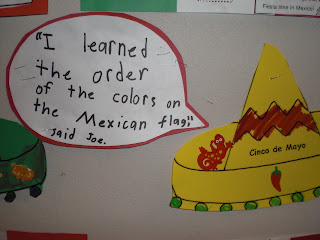 Fiesta time in Mexico!
"I learned
the order
of the colors on
the Mexican flag,"
said Joe.
Cinco de Mayo